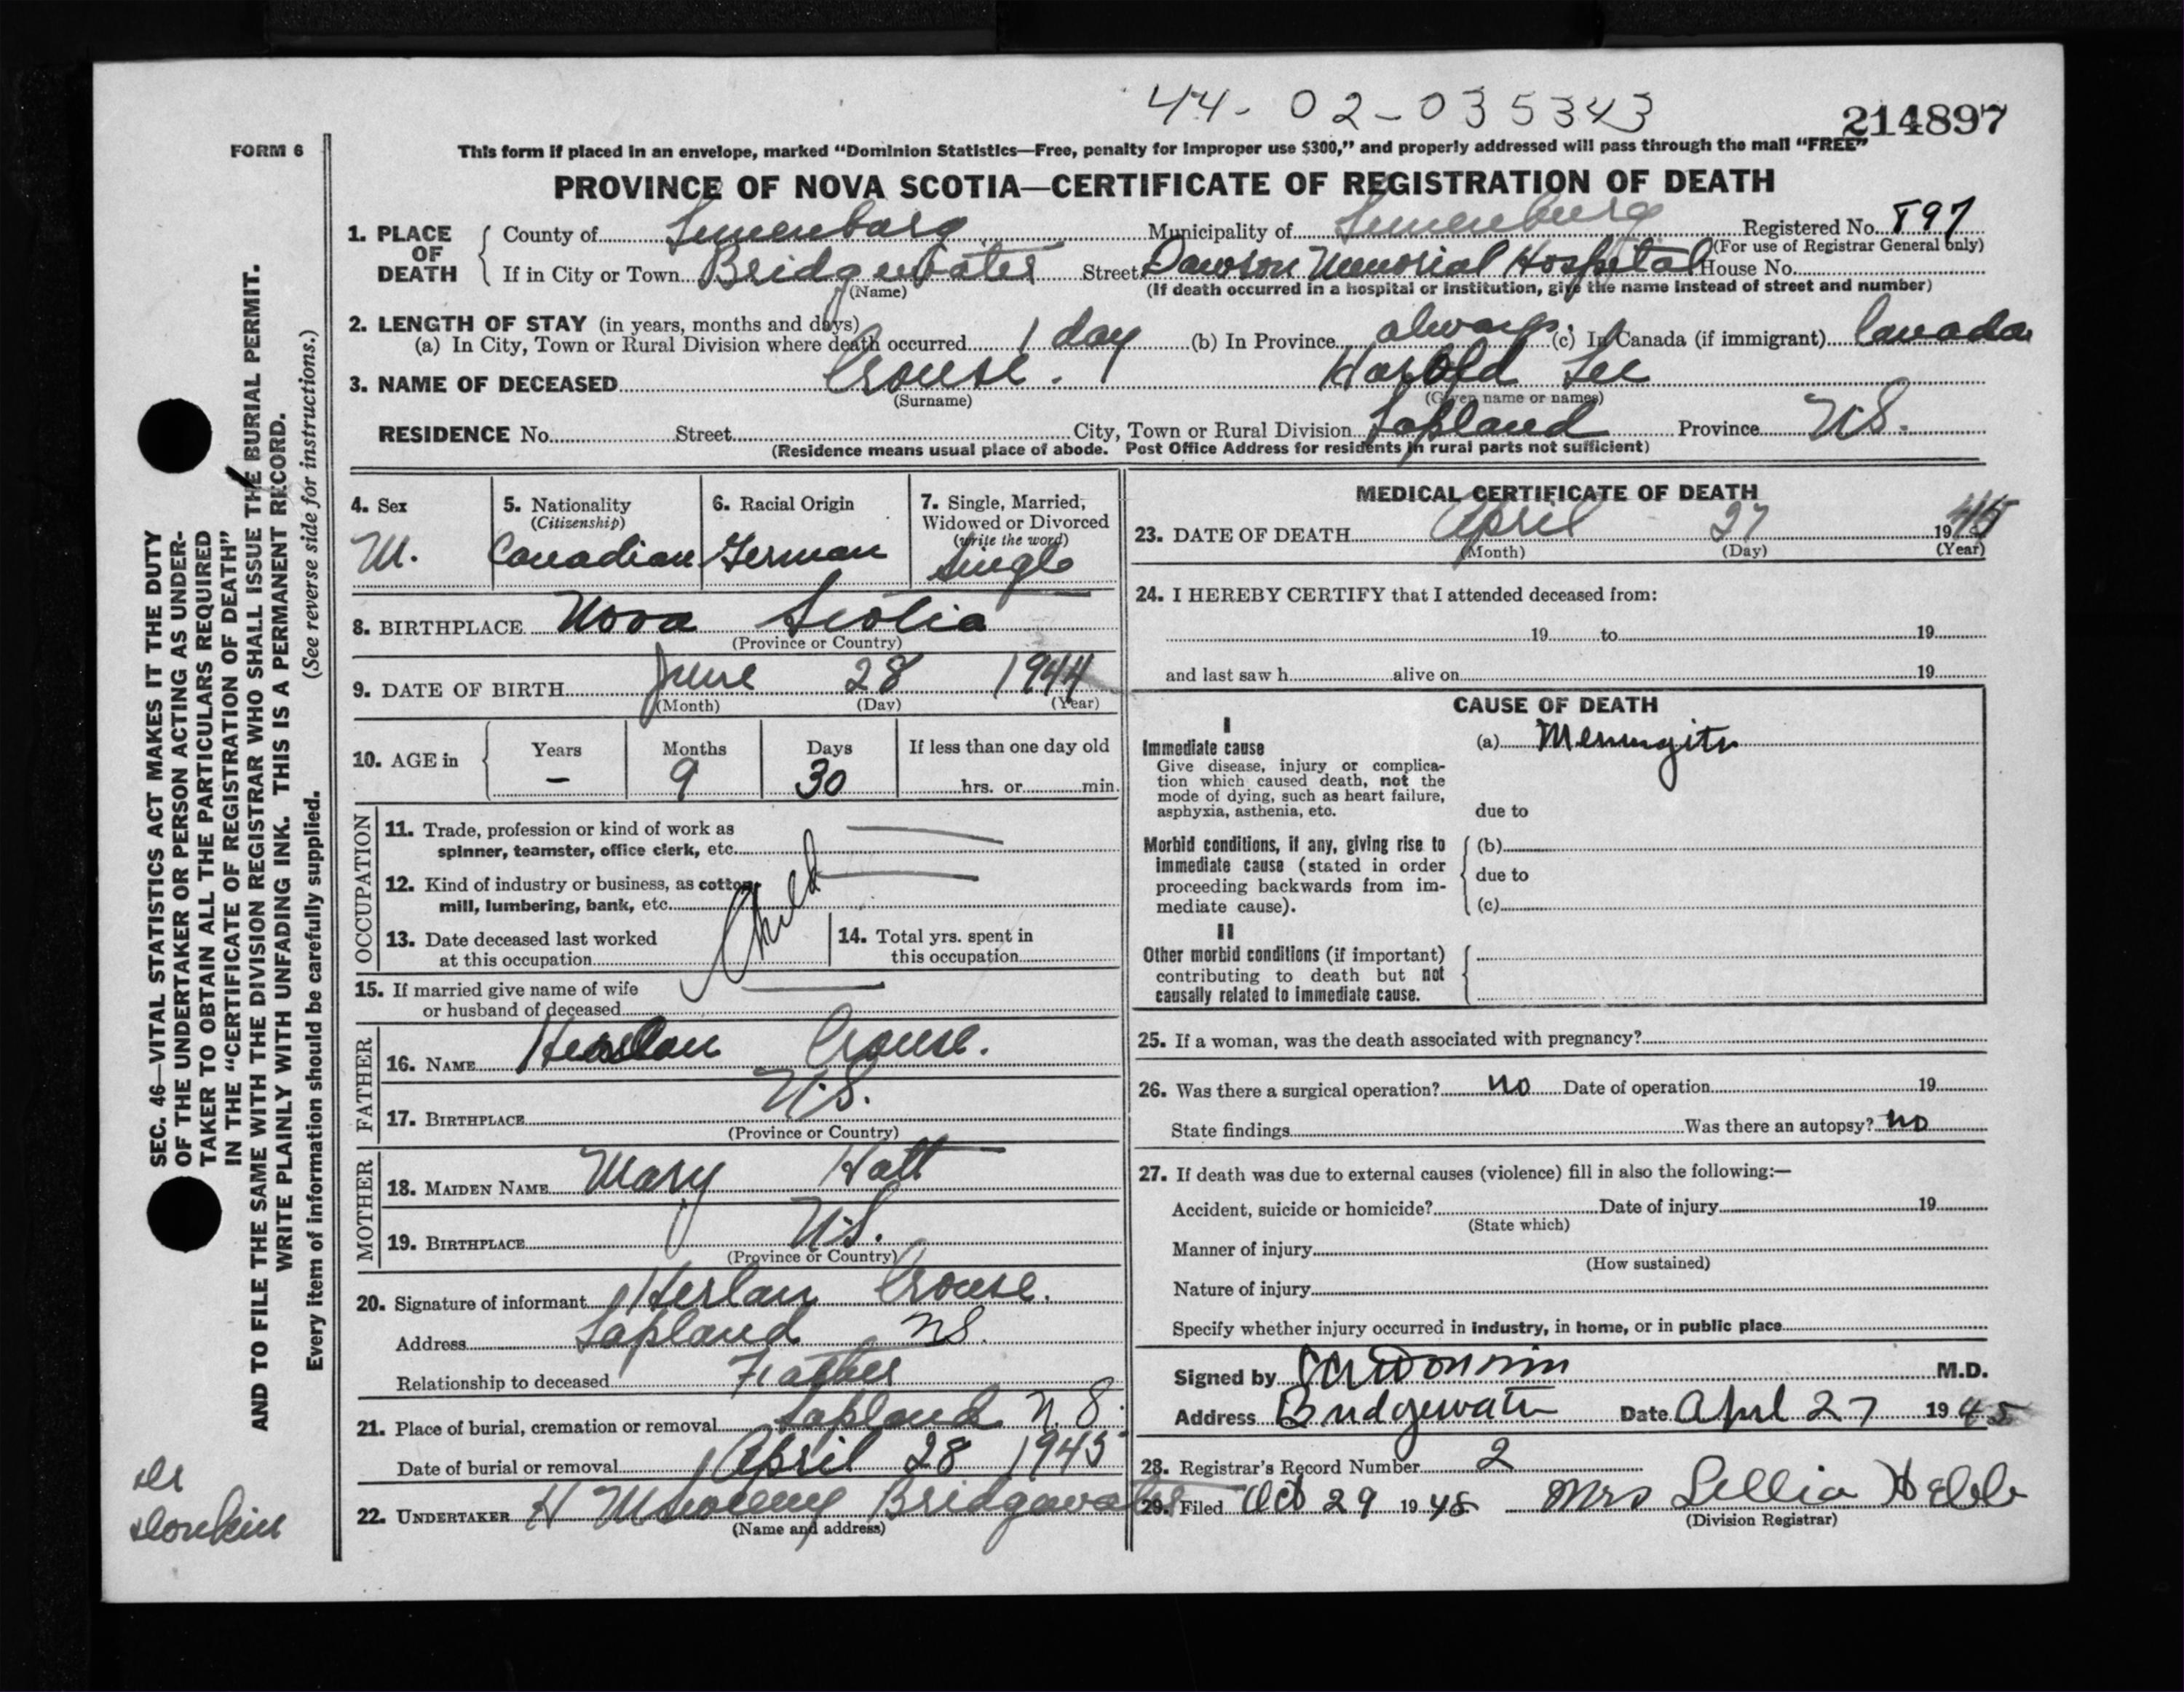 44-02-035343
214897
FORM 6
This form if placed in an envelope, marked "Dominion Statistics—Free, penalty for improper use $300," and properly addressed will pass through the mail "FREE"
PROVINCE OF NOVA SCOTIA—CERTIFICATE OF REGISTRATION OF DEATH
1. PLACE OF DEATH County of Lunenburg Municipality of Lunenburg Registered No. 897
(For use of Registrar General only)
If in City or Town Bridgewater Street Dawson Memorial Hospital House No.
(Name) (If death occurred in a hospital or institution, give the name instead of street and number)
2. LENGTH OF STAY (in years, months and days)
(a) In City, Town or Rural Division where death occurred 1 day (b) In Province always. (c) In Canada (if immigrant) Canada
3. NAME OF DECEASED Crouse. Harold Lee
(Surname) (Given name or names)
RESIDENCE No. Street City, Town or Rural Division Lapland Province N.S.
(Residence means usual place of abode. Post Office Address for residents in rural parts not sufficient)
4. Sex
M.
5. Nationality
(Citizenship)
Canadian
6. Racial Origin
German
7. Single, Married,
Widowed or Divorced
(write the word)
Single
8. BIRTHPLACE Nova Scotia
(Province or Country)
9. DATE OF BIRTH June 28 1944
(Month) (Day) (Year)
10. AGE in Years Months Days If less than one day old
— 9 30 hrs. or min.
OCCUPATION
11. Trade, profession or kind of work as
spinner, teamster, office clerk, etc.
12. Kind of industry or business, as cotton
mill, lumbering, bank, etc.
Child
13. Date deceased last worked
at this occupation
14. Total yrs. spent in
this occupation
15. If married give name of wife
or husband of deceased
FATHER
16. NAME Heaslan Crouse.
17. BIRTHPLACE N.S.
(Province or Country)
MOTHER
18. MAIDEN NAME Mary Hatt
19. BIRTHPLACE N.S.
(Province or Country)
20. Signature of informant Herlan Crouse.
Address Lapland NS.
Relationship to deceased Father
21. Place of burial, cremation or removal Lapland N.S.
Date of burial or removal April 28 1945
22. UNDERTAKER H Bridgewater
(Name and address)
MEDICAL CERTIFICATE OF DEATH
23. DATE OF DEATH April 27 1945
(Month) (Day) (Year)
24. I HEREBY CERTIFY that I attended deceased from:
19 to 19
and last saw h alive on 19
CAUSE OF DEATH
I
Immediate cause
Give disease, injury or complica-
tion which caused death, not the
mode of dying, such as heart failure,
asphyxia, asthenia, etc.
(a) Meningitis
due to
Morbid conditions, if any, giving rise to
immediate cause (stated in order
proceeding backwards from im-
mediate cause).
(b)
due to
(c)
II
Other morbid conditions (if important)
contributing to death but not
causally related to immediate cause.
25. If a woman, was the death associated with pregnancy?
26. Was there a surgical operation? no Date of operation 19
State findings Was there an autopsy? no
27. If death was due to external causes (violence) fill in also the following:—
Accident, suicide or homicide? Date of injury 19
(State which)
Manner of injury
(How sustained)
Nature of injury
Specify whether injury occurred in industry, in home, or in public place
Signed by M.D.
Address Bridgewater Date April 27 1945
28. Registrar's Record Number 2
29. Filed Oct 29 1945 Mrs Lellia Hebb
(Division Registrar)
SEC. 46—VITAL STATISTICS ACT MAKES IT THE DUTY
OF THE UNDERTAKER OR PERSON ACTING AS UNDER-
TAKER TO OBTAIN ALL THE PARTICULARS REQUIRED
IN THE "CERTIFICATE OF REGISTRATION OF DEATH"
AND TO FILE THE SAME WITH THE DIVISION REGISTRAR WHO SHALL ISSUE THE BURIAL PERMIT.
WRITE PLAINLY WITH UNFADING INK. THIS IS A PERMANENT RECORD.
Every item of information should be carefully supplied. (See reverse side for instructions.)
Dr
Donkin